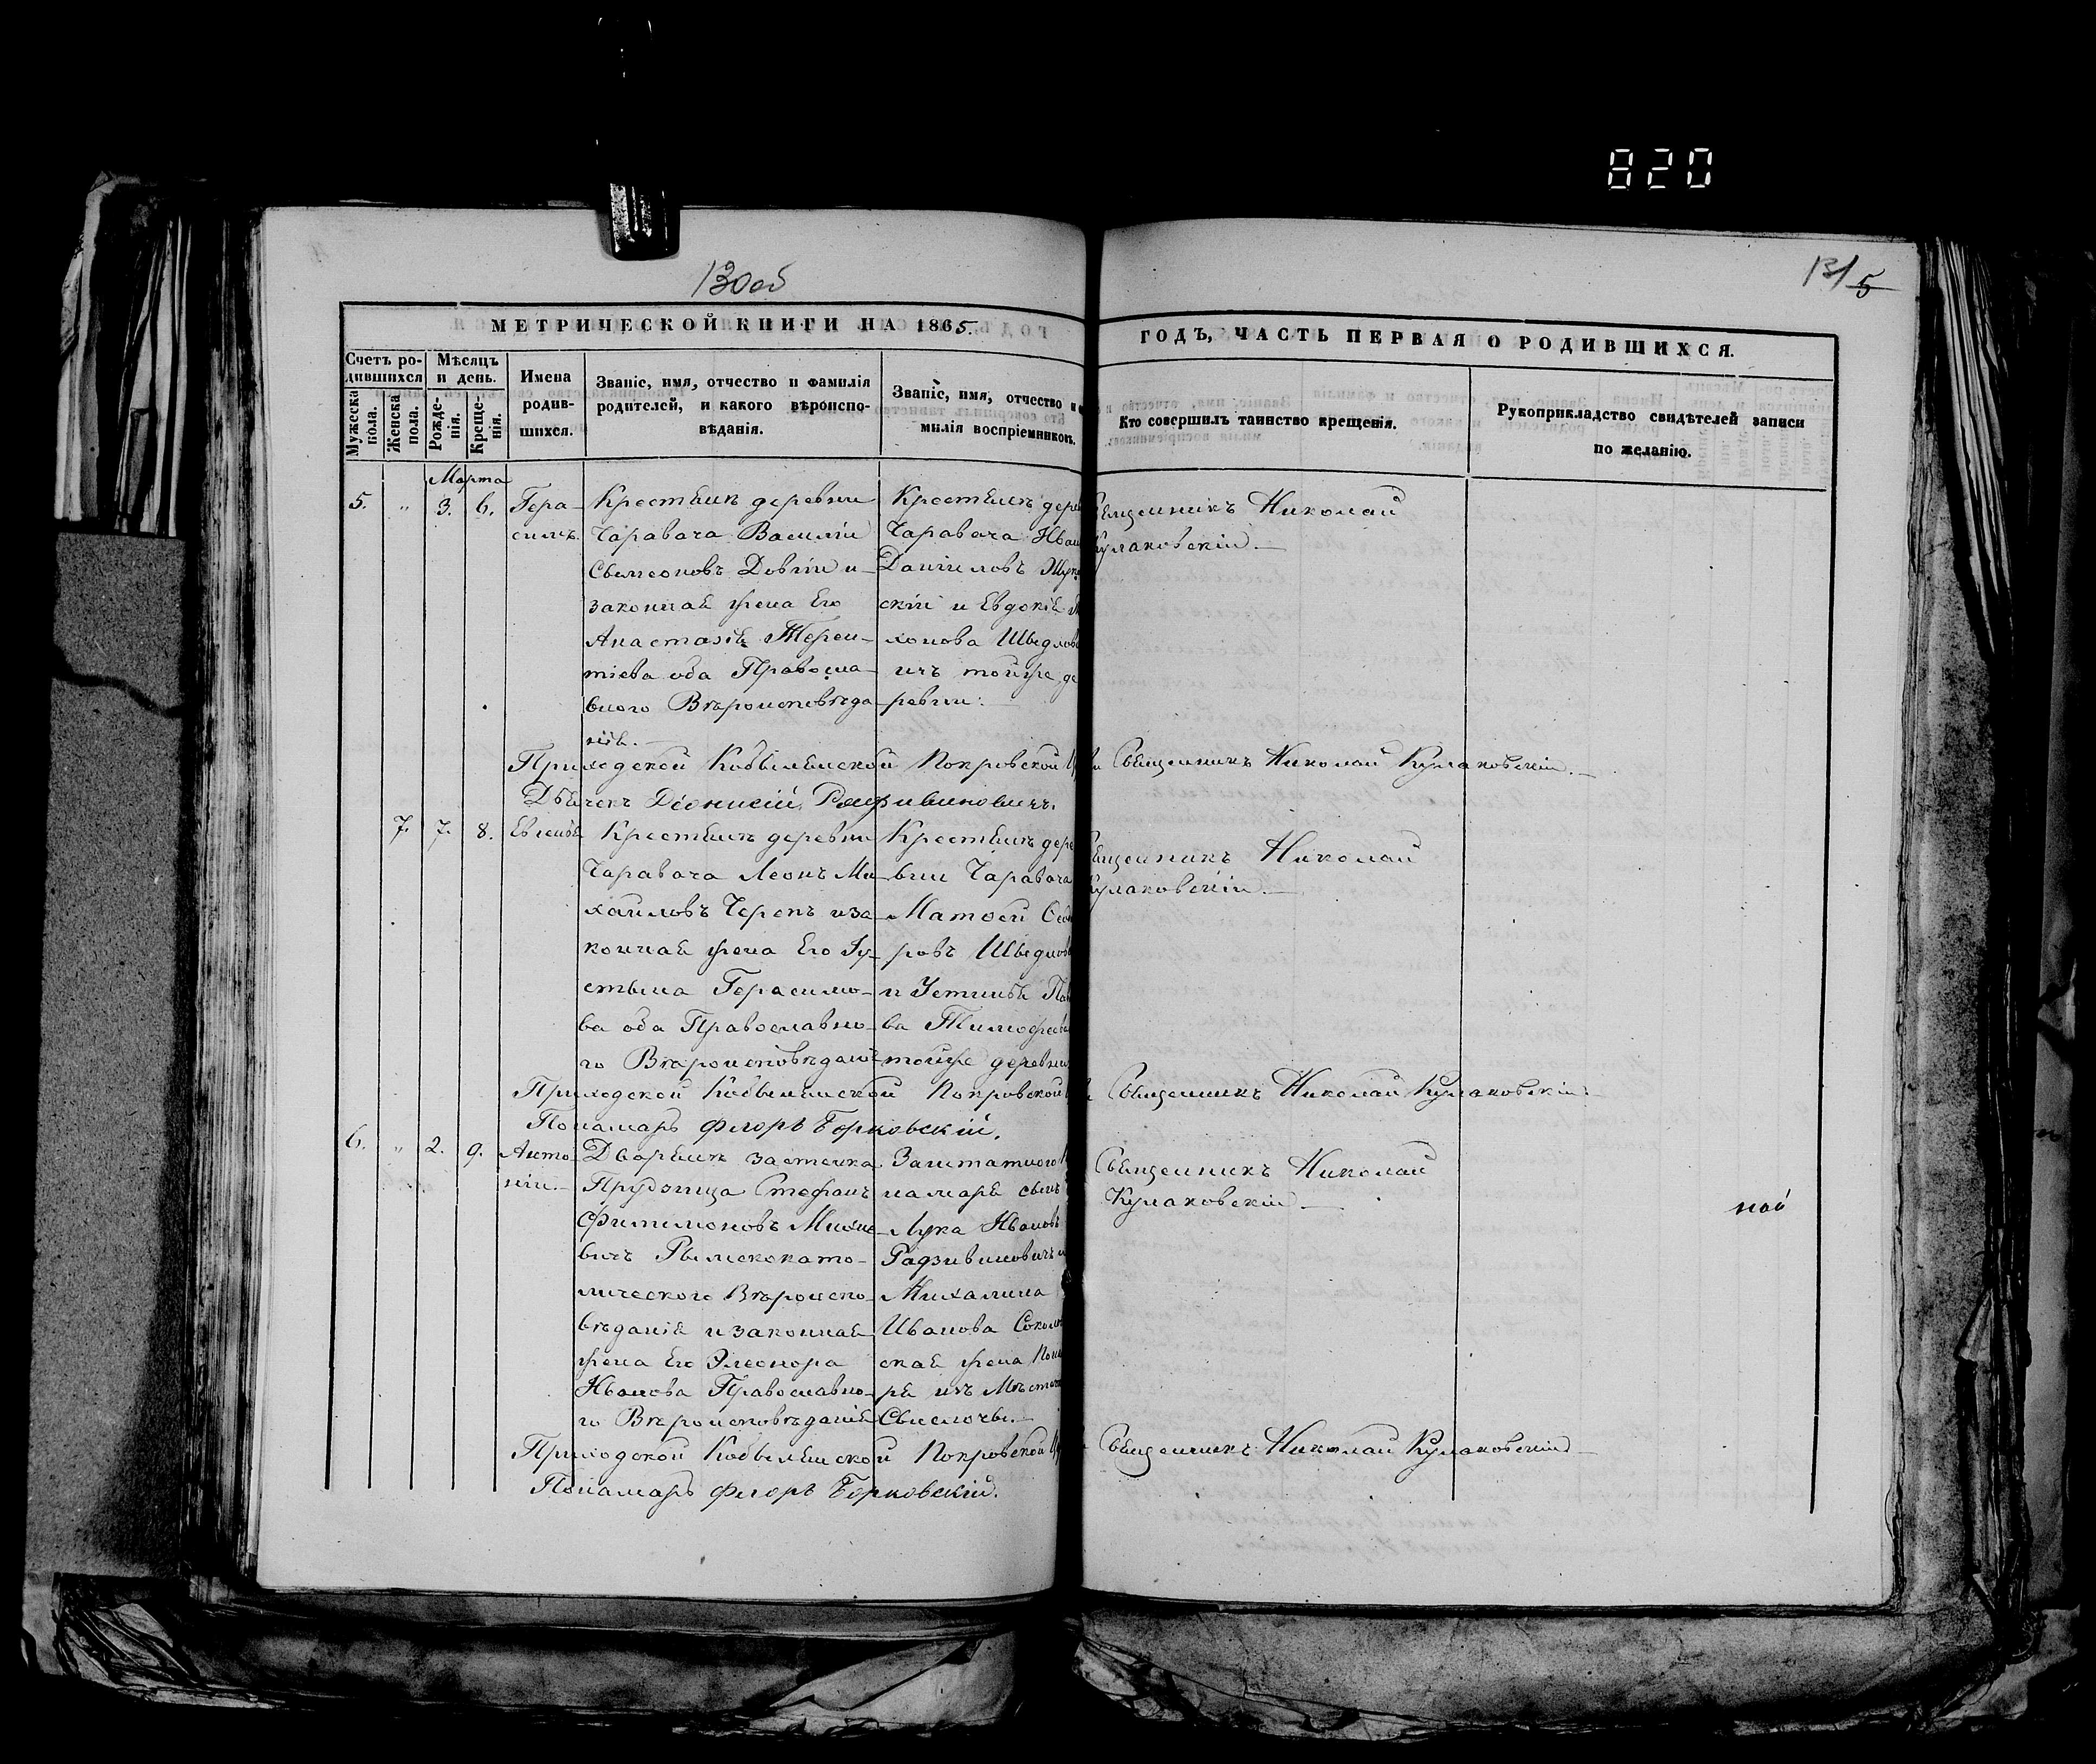 820
130об
131 5
МЕТРИЧЕСКОЙ КНИГИ НА 1865.
ГОДЪ, ЧАСТЬ ПЕРВАЯ О РОДИВШИХСЯ.
Счетъ ро-
дившихся
Мужеска
пола.
Женска
пола.
Мѣсяцъ
и день.
Рожде-
нія.
Креще-
нія.
Имена
родив-
шихся.
Званіе, имя, отчество и фамилія
родителей, и какого вѣроиспо-
вѣданія.
Званіе, имя, отчество и
милія воспріемниковъ.
Кто совершилъ таинство крещенія.
Рукоприкладство свидѣтелей записи
по желанію.
Марта
5. „ 3. 6. Гера-
симъ.
Крестьянъ деревни
Чаравача Василій
Сѵмеоновъ Довгій и
законная жена Его
Анастазія Терен-
тіева оба Правосла-
вного Вѣроисповѣда
нія.
Крестьянъ дере
Чаравача Иван
Даніиловъ
скій и Евдокія
хонова Шведов
изъ тойже де
ревни:
Священникъ Николай
Кулаковскій.
Приходской Кобылянской Покровской Священникъ Николай Кулаковскій.
Дьячекъ Діонисій
7. 7. 8. Евгенія
Крестьянъ деревни
Чаравача Леонъ Ми-
хайловъ Черепъ и за-
конная жена Его Іу-
стына Герасимо-
ва оба Православно-
го Вѣроисповѣданія
Крестьянъ дере
вни Чаравача
Матѳей
ровъ
и Устинія Пав
ва Тимофеева
тойже деревни
Священникъ Николай
Кулаковскій.
Приходской Кобылянской Покровской Священникъ Николай Кулаковскій.
Понамаръ Флоръ Борковскій.
6. „ 2. 9. Анто-
ній.
Дворянъ застенка
Стефанъ
Филимоновъ
вичъ Рымскокато-
лического Вѣроиспо-
вѣданія и законная
жена Его Элеонора
Иванова Православно-
го Вѣроисповѣданія
Заштатного
намаря сынъ
Лука Ивановъ
Радзивиновичъ и
Михалина
Иванова
ская жена Пона
ря изъ Мѣстеч
Свислочы.
Священникъ Николай
Кулаковскій
Приходской Кобылянской Покровской Священникъ Николай Кулаковскій
Понамаръ Флоръ Борковскій.